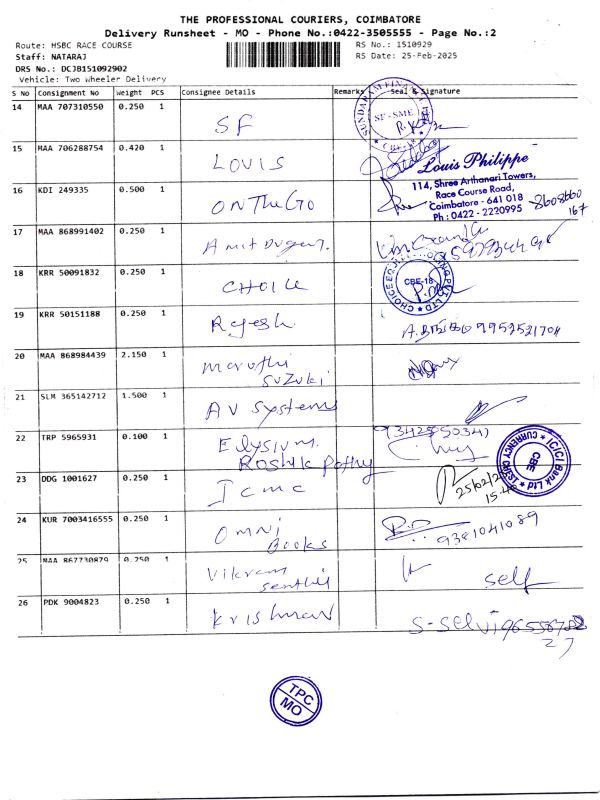 THE PROFESSIONAL COURIERS, COIMBATORE
Delivery Runsheet - MO - Phone No.:0422-3505555 - Page No.:2
Route: HSBC RACE COURSE
RS No.: 1510929
Staff: NATARAJ
RS Date: 25-Feb-2025
DRS No.: DCJB151092902
Vehicle: Two Wheeler Delivery
S No Consignment No Weight PCS Consignee Details Remarks Seal & Signature
14 MAA 707310550 0.250 1 SF
SUNDARAM
SF-SME
CBE
15 MAA 706288754 0.420 1 LOUIS
Louis Philippe
114, Shree Arthanari Towers,
Race Course Road,
Coimbatore - 641 018
Ph : 0422 - 2220995
16 KDI 249335 0.500 1 ONTheGO
8608660
167
17 MAA 868991402 0.250 1
18 KRR 50091832 0.250 1 CHOICE
CBE-18
PVT LTD
19 KRR 50151188 0.250 1 Rajesh
9952521704
20 MAA 868984439 2.150 1 Maruthi
Suzuki
21 SLM 365142712 1.500 1 AV Systems
22 TRP 5965931 0.100 1 Elysium
Roshik pathy
9342550341
ICICI Bank Ltd
CURRENCY CHEST
CBE
23 DDG 1001627 0.250 1 Icmc
25/02/25
15.40
24 KUR 7003416555 0.250 1 Omni
Books
9381041089
25 MAA 867730879 0.250 1 Vikram
Senthil
self
26 PDK 9004823 0.250 1 Krishnan
S-Selvi
27
TPC
MO